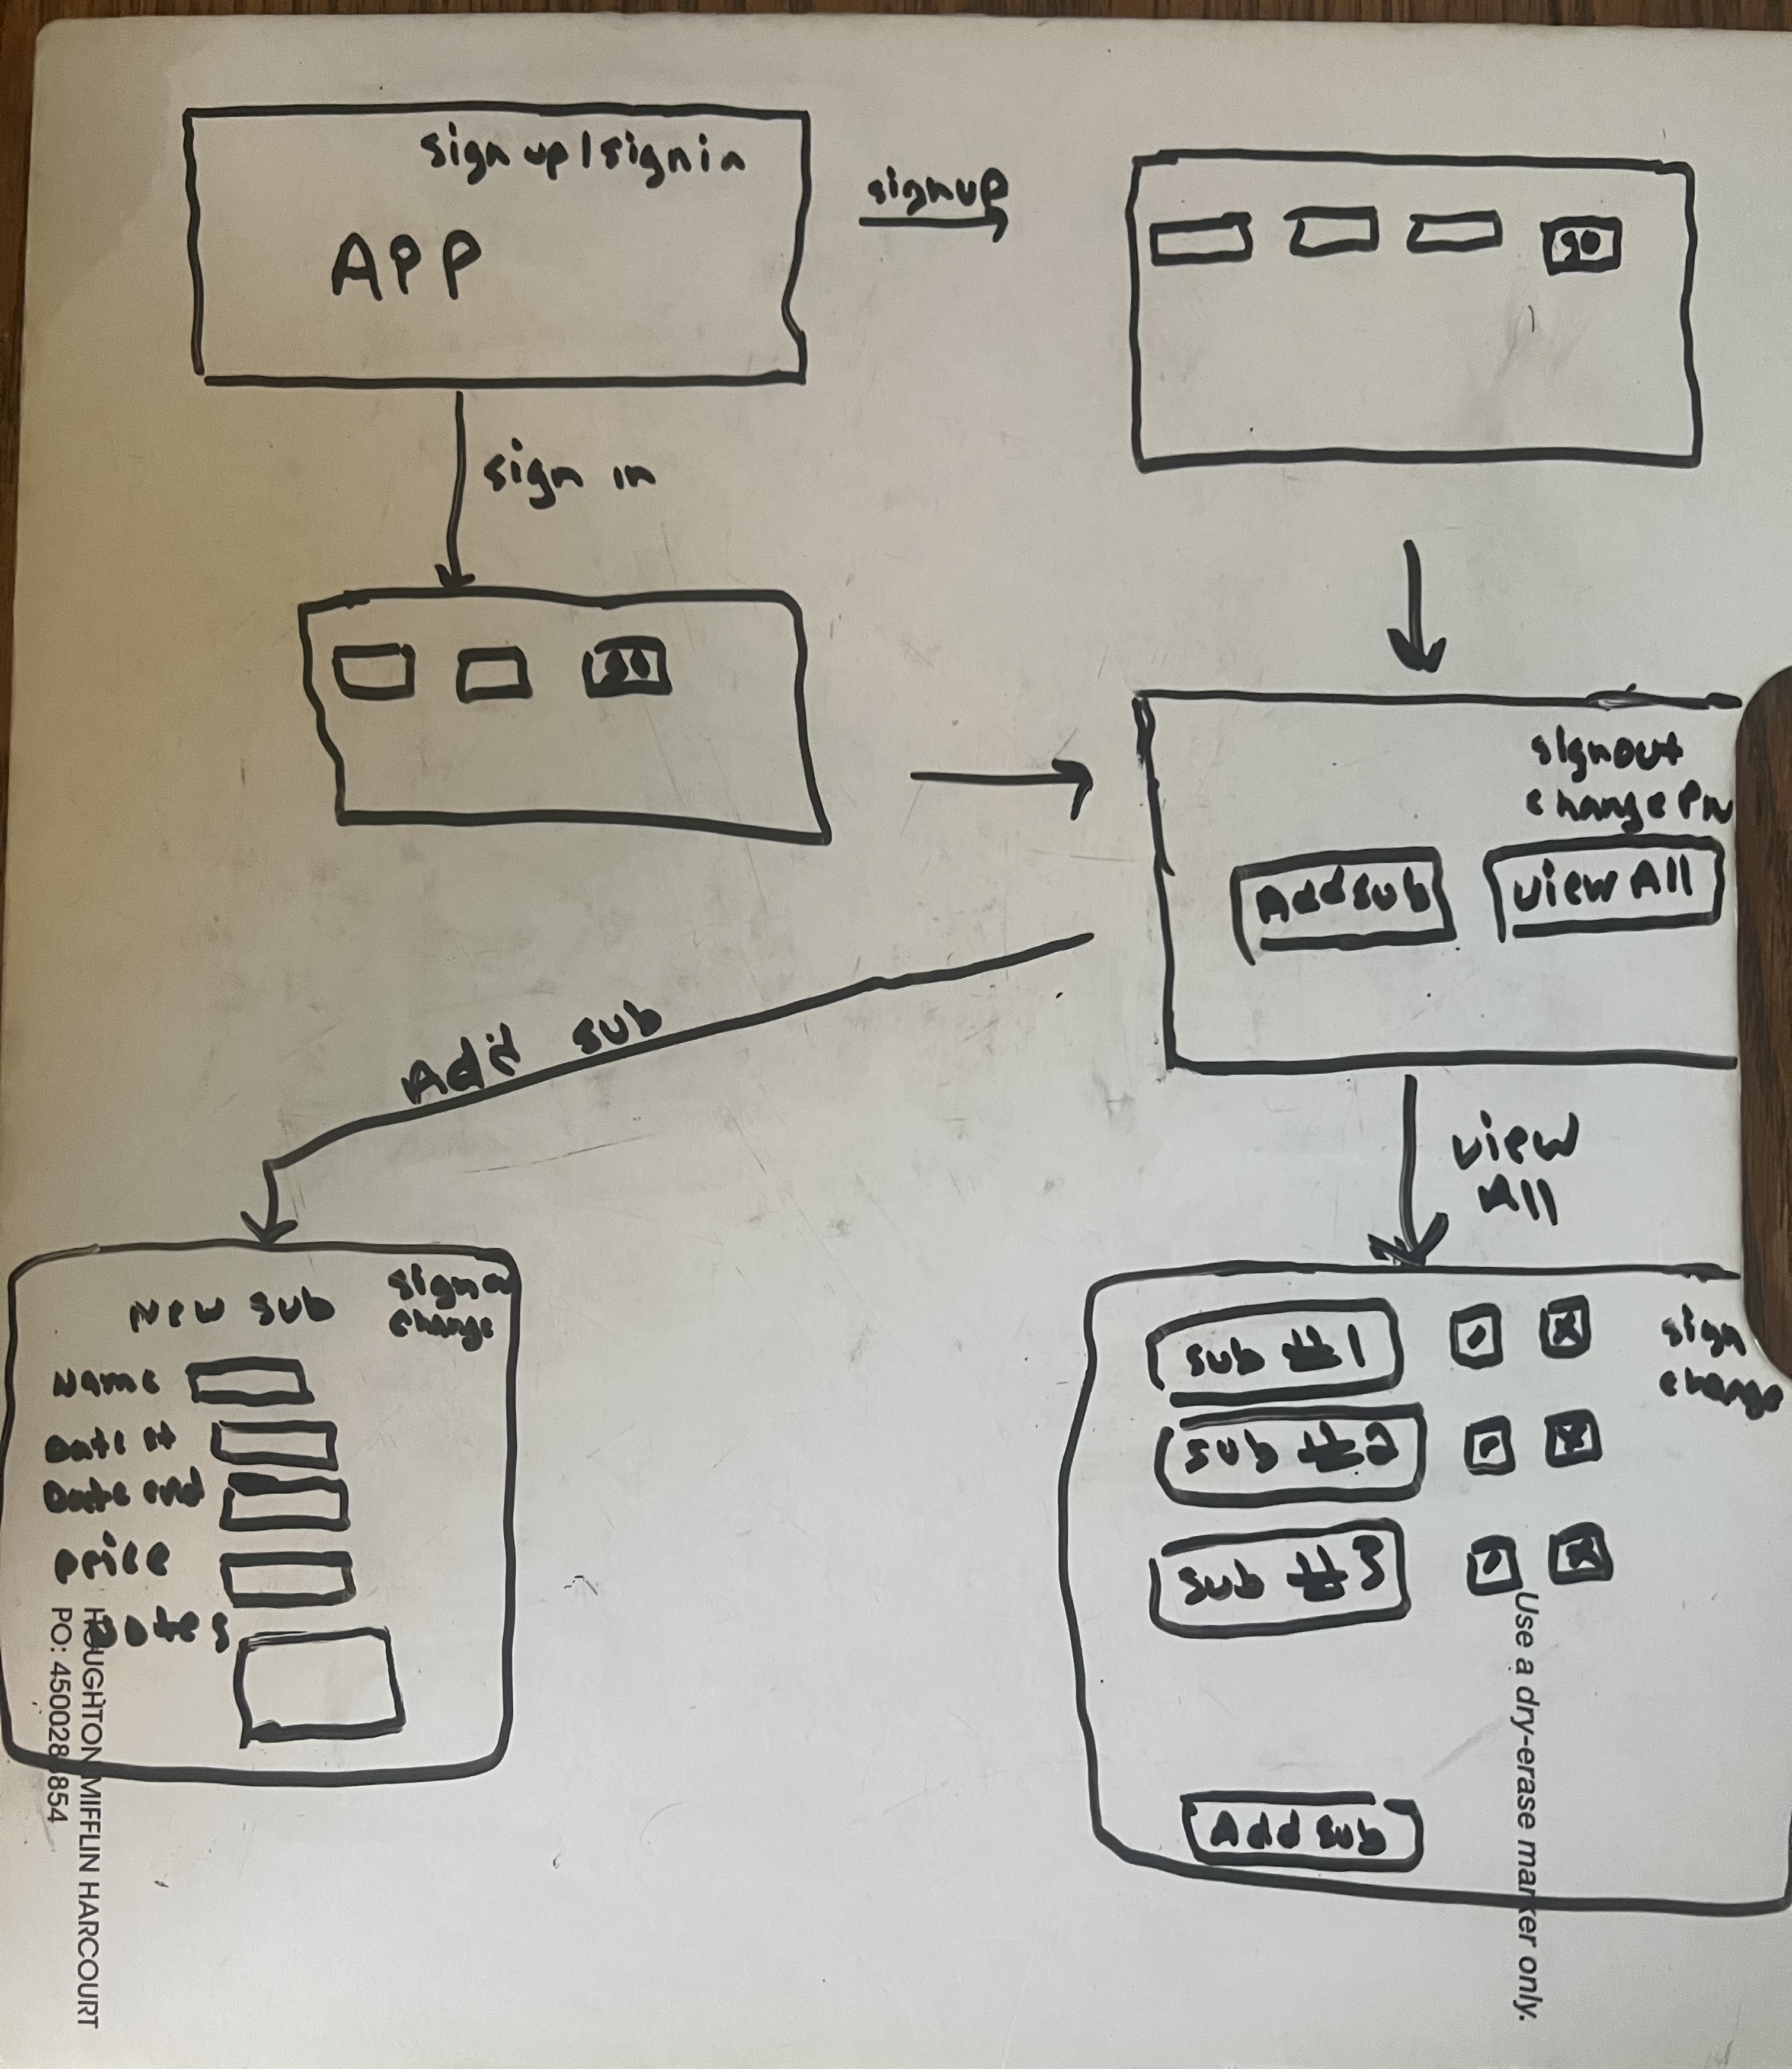 sign up | sign in
APP
signup
go
sign in
go
signout
change PW
Add sub
View All
Add sub
view
All
New sub
sign o
change
Name
Date st
Date end
price
notes
sub #1
sub #2
sub #3
x
x
x
sign
change
Add sub
HOUGHTON MIFFLIN HARCOURT
Use a dry-erase marker only.